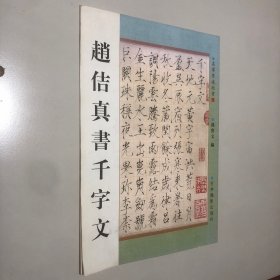 趙佶真書千字文
千字文
天地元黃宇宙洪荒日月
盈昃辰宿列張寒來暑往
秋收冬藏閏餘成歲律呂
調陽雲騰致雨露結為霜
金生麗水玉出崑岡劍號
巨闕珠稱夜光果珍李柰